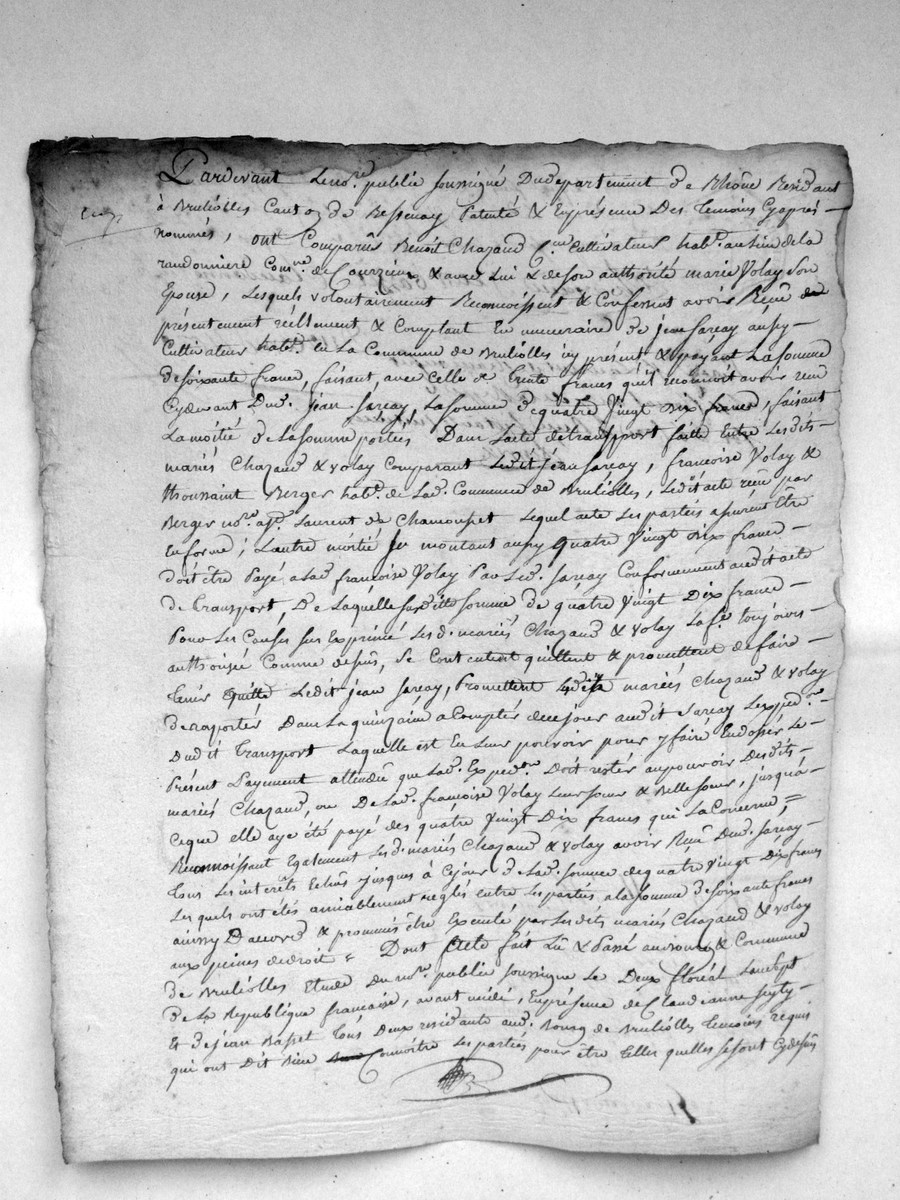 Pardevant Le no.re public soussigné Du département de Rhône Résidant
à Brulióles Canton de Bessenay Patenté & En présence Des temoins Cy après
nommés, ont Comparûs Benoît Chazaud Cultivateur hab.t au lieu de la
randonniere Com.ne de Courzieu & avec Lui & de son authorité marie Volay Son
Epouse, Lesquels volontairement Reconnoissent & Confessent avoir Reçu
présentement réellement & Comptant En numeraire de jean Sarcay aussy
Cultivateur hab.t en La Commune de Brulióles icy présent & payant La somme
de soixante francs, faisant, avec Celle de trente francs qu'il reconnoit avoir reçu
Cydevant Dud. jean Sarcay, La somme de quatre Vingt dix francs, faisant
La moitié de La somme portée Dans L'acte de transport faitte Entre Lesdits
mariés Chazaud & volay Comparant Ledit jean Sarcay, françoise Volay &
thoussaint Berger hab.t de Lad. Commune de Brulióles, Ledit acte reçu par
Berger no.re a St. Laurent de Chamousset Lequel acte Les parties assurent être
En forme; L'autre moitié montant aussy quatre Vingt dix francs
doit être Payé a Lad. françoise Volay Par Led. Sarcay Conformement audit acte
de transport, De Laquelle susditte somme de quatre Vingt Dix francs
Pour Les Causes sus Exprimé Lesd. mariés Chazaud & volay La f.e toujours
authorisée Comme dessus, Se Contentent quittent & promettent de faire
tenir quitte Ledit jean Sarcay, Promettent Lesdits mariés Chazaud & volay
de raportér Dans La quinzaine a Comptér de ce jour audit Sarcay L'expéd.on
Dudit transport Laquelle est En Leur pouvoir pour y faire Endosser Le
Présent Payement attendu que Lad. Expéd.on Doit restér au pouvoir Desdits
mariés Chazaud, ou De Lad. françoise Volay Leur soeur & Belle soeur, jusqu'a
Ceque elle aye été payé des quatre Vingt Dix francs qui La Concerne,
Reconnoissant Egalement Lesd. mariés Chazaud & volay avoir Reçu Dud. Sarcay
tous Les interêts Echûs jusques à Ce jour de Lad. somme de quatre Vingt Dix francs
Les quels ont étés amiablement réglés entre Les parties a la somme de soixante francs
ainsy D'accord & promis être Exécuté par Lesdits mariés Chazaud & volay
aux peines de droit = Dont Acte fait Lû & Passé au bourg & Commune
de Brulióles Etude du no.re public soussigné Le Deux floréal L'an Sept
de La République française, avant midi, En présence de Claude
Et de jean Basset tous Deux residants aud. Bourg de Brulióles temoins requis
qui ont Dit Bien Connoitre Les parties pour être Elles quelles se sont Cydessus